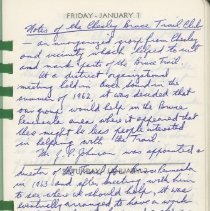 FRIDAY - JANUARY 1
Notes of the Chesley Bruce Trail Club
- an unorganized group from Chesley
and vicinity which helped to cut
and mark parts of the Bruce Trail.
At a district organizational
meeting held in Owen Sound in the
summer of 1962, it was decided that
our group would help in the Bruce
Peninsula area where it appeared that
they might be less people interested
in helping with the Trail.
Mr. J. P. Johnson was appointed a
director of the
in 1963 and after meeting with him
to see where we should help, it was
eventually arranged to have a work